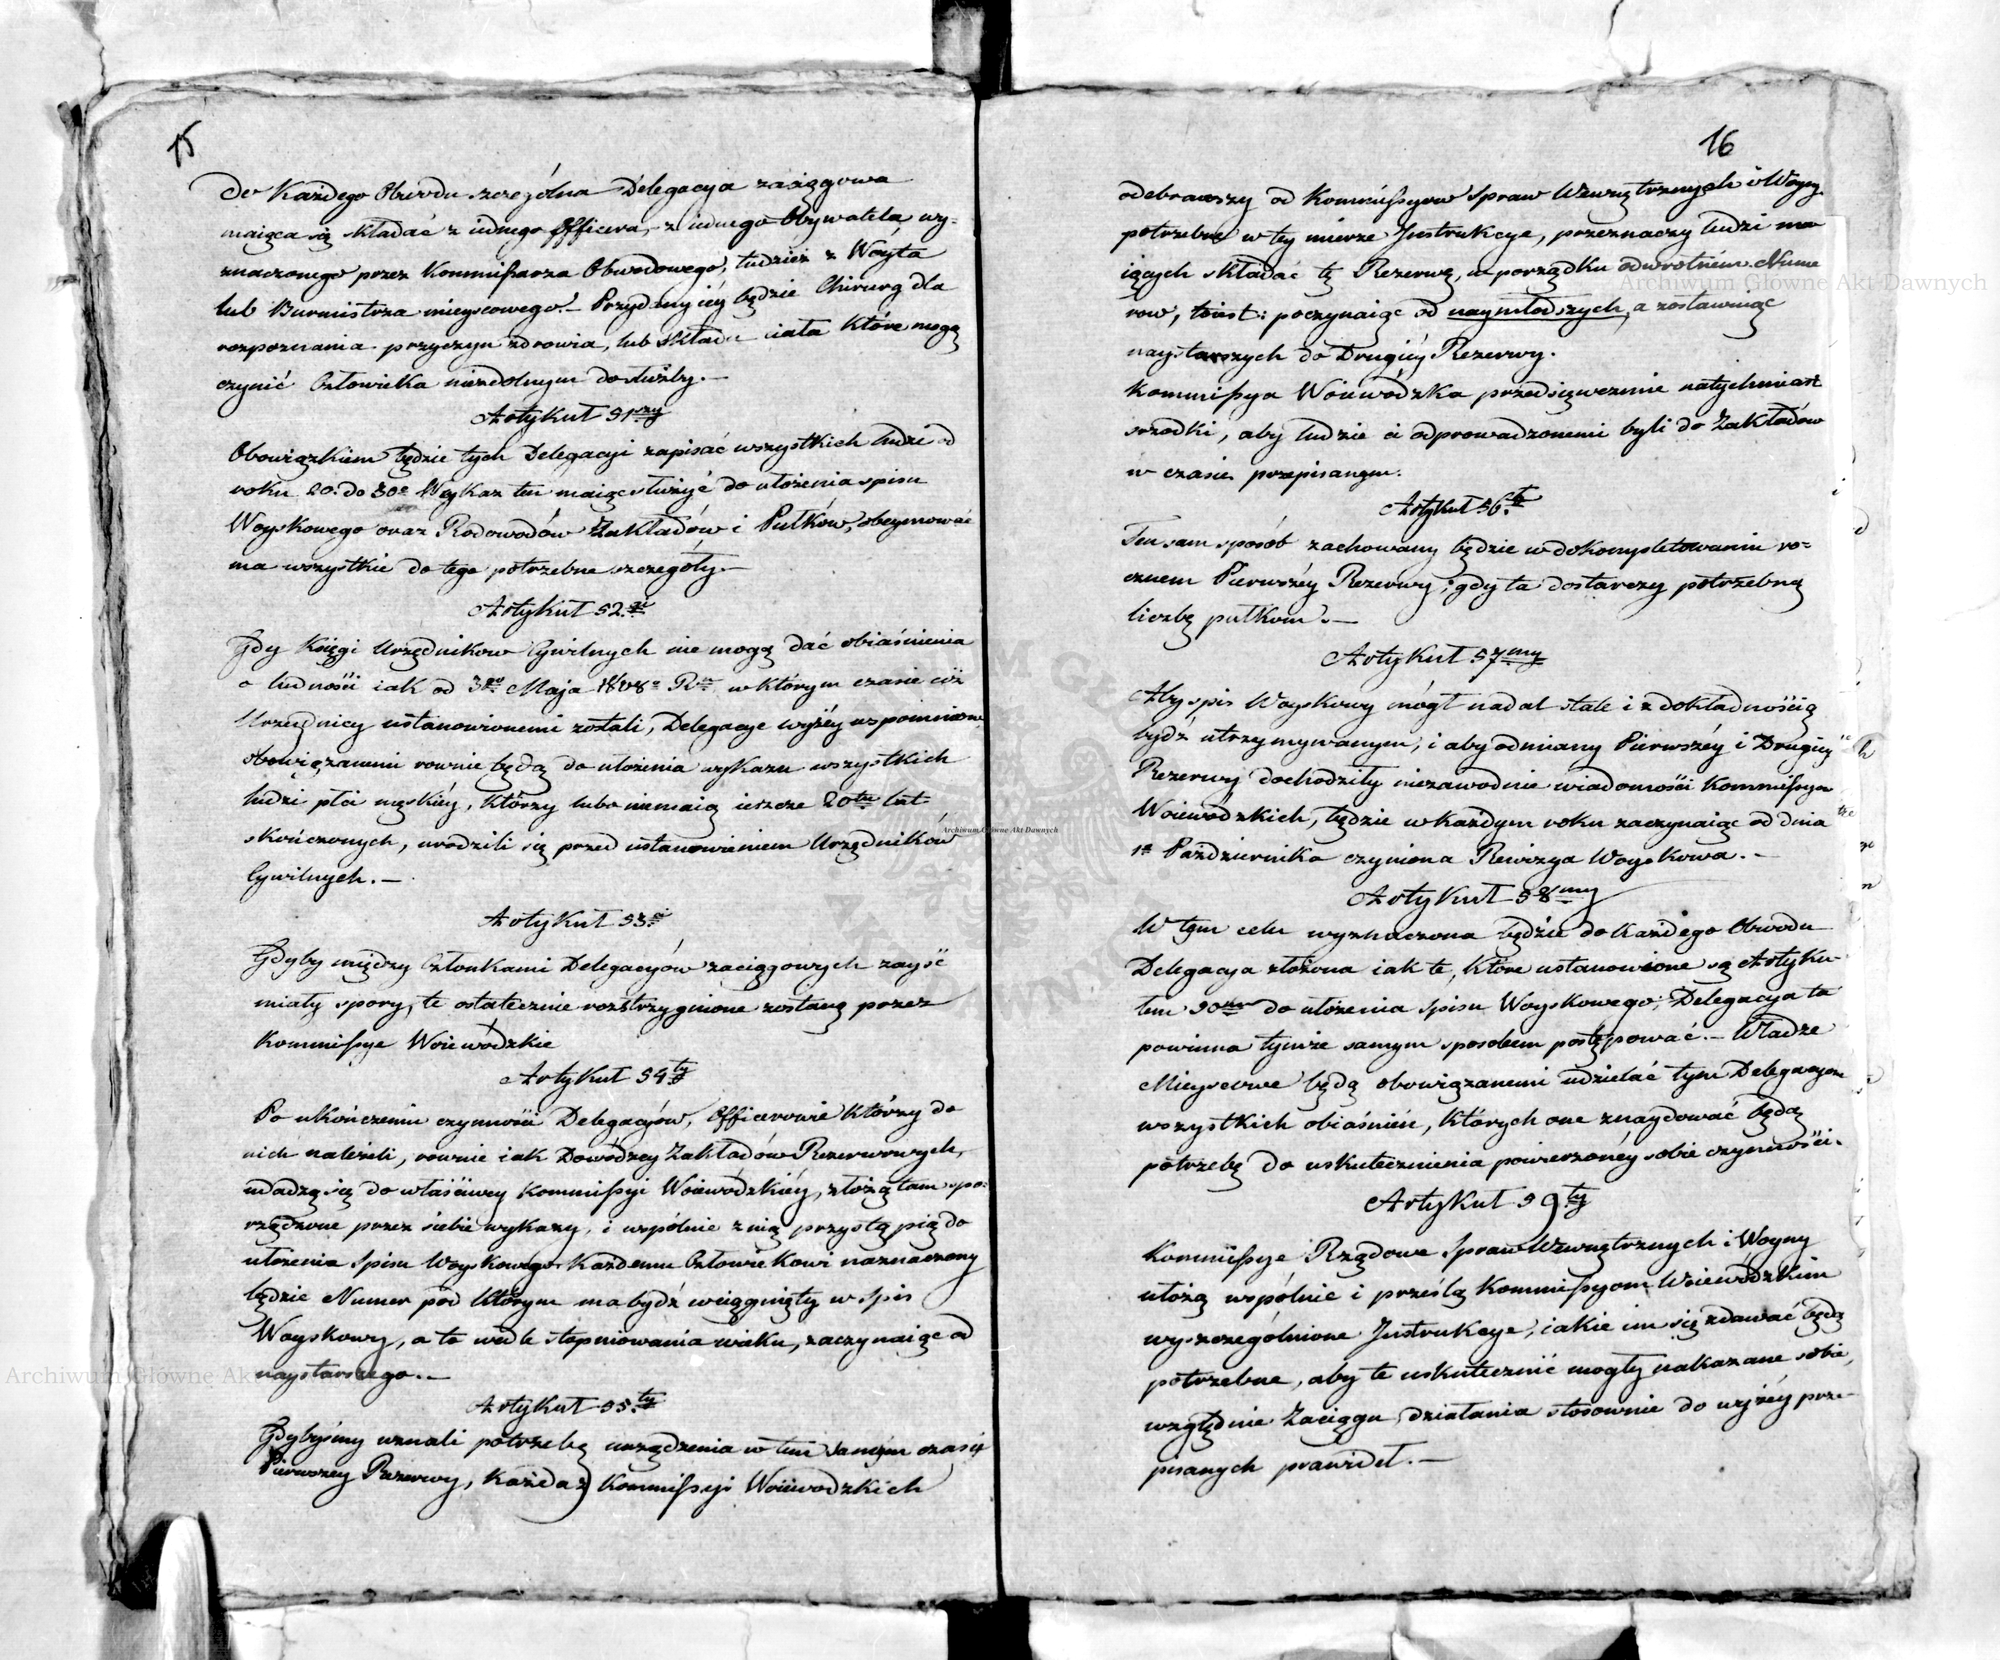 15
do Każdego Obwodu szczególna Delegacya zaciągowa
maiąca się składać z iednego Officera, z iednego Obywatela, wy-
znaczonego przez Kommissarza Obwodowego, tudzież z Woyta
lub Burmistrza mieyscowego. – Przydanym iéy będzie Chirurg dla
rozpoznania przyczyn zdrowia, lub składu ciała które mogą
czynić Człowieka niezdolnym do służby. –
Artykuł 51szy
Obowiązkiem będzie tych Delegacyi zapisać wszystkich ludzi od
roku 20. do 30o Wykaz ten maiąc służyć do ułożenia spisu
Woyskowego oraz Rodowodów Zakładów i Pułków, obeymować
ma wszystkie do tego potrzebne szczegóły. –
Artykuł 52gi
Gdy Księgi Urzędnikow Cywilnych nie mogą dać obiaśnienia
o ludności iak od 3go Maja 1808o Rku w którym czasie ciż
Urzędnicy ustanowionemi zostali, Delegacye wyżéy wspomnione
obowiązanemi rownie będą do ułożenia wykazu wszystkich
ludzi płci męskiéy, którzy lubo niemaią ieszcze 20tu lat
skończonych, urodzili się przed ustanowieniem Urzędników
Cywilnych. –
Artykuł 53ci
Gdyby między Członkami Delegacyów zaciągowych zayść
miały spory, te ostatecznie rozstrzygnione zostaną przez
Kommissye Woiewódzkie
Artykuł 54ty
Po ukończeniu czynności Delegacyów, Officerowie którzy do
nich należeli, rownie iak Dowódzcy Zakładów Rezerwowych,
udadzą się do właściwey Kommissyi Woiewódzkiéy, złożą tam spo-
rządzone przez siebie wykazy, i wspólnie z nią przystąpią do
ułożenia Spisu Woyskowego Każdemu Człowiekowi naznaczony
będzie Numer pod którym ma bydź wciągnięty w Spis
Woyskowy, a to wedle stopniowania wieku, zaczynaiąc od
naystarszego. –
Artykuł 55ty
Gdybyśmy uznali potrzebę urządzenia w tem samym czasie
Pierwszey Rezerwy, każda z Kommissyi Woiewodzkich
16
odebrawszy od Kommissyow Spraw Wewnętrznych i Woyny
potrzebne w tey mierze Instrukcye, przeznaczy ludzi ma
iących składać tę Rezerwę, w porządku odwrotném Nume
row, toiest: poczynaiąc od naymłodszych, a zostawuiąc
naystarszych do Drugiéy Rezerwy.
Kommissya Woiewódzka przedsięweźmie natychmiast
srzodki, aby ludzie ci odprowadzonemi byli do Zakładów
w czasie przepisanym.
Artykuł 56ty
Ten sam sposób zachowany będzie w dokompletowaniu ro-
cznem Pierwszéy Rezerwy, gdy ta dostarczy potrzebną
liczbę pułkom. –
Artykuł 57my
Aby spis Woyskowy mógł nadal stale i z dokładnością
bydź utrzymywanym, i aby odmiany Pierwszéy i Drugiéy
Rezerwy dochodziły niezawodnie wiadomości Kommissyow
Woiewódzkich, będzie w każdym roku zaczynaiąc od dnia
1o Października czyniona Rewizya Woyskowa. –
Artykuł 58my
W tym celu wyznaczona będzie do każdego Obwodu
Delegacya złożona iak te, które ustanowione są Artyku-
łem 50tym do ułożenia Spisu Woyskowego; Delegacya ta
powinna tymże samym sposobem postępować. – Władze
Mieyscowe będą obowiązanemi udzielać tym Delegacyom
wszystkich obiaśnień, których one znaydować będą
potrzebę do uskutecznienia powierzonéy sobie czynności.
Artykuł 59ty
Kommissye Rządowe Spraw Wewnętrznych i Woyny
ułożą wspólnie i prześlą Kommissyom Woiewódzkim
wyszczególnione Instrukcye, iakie im się zdawać będą
potrzebne, aby te uskutecznić mogły nakazane sobie,
względnie Zaciągu działania stosownie do wyżéy prze-
pisanych prawideł. –
Archiwum Główne Akt Dawnych
Archiwum Główne Akt Dawnych
Archiwum Główne Akt